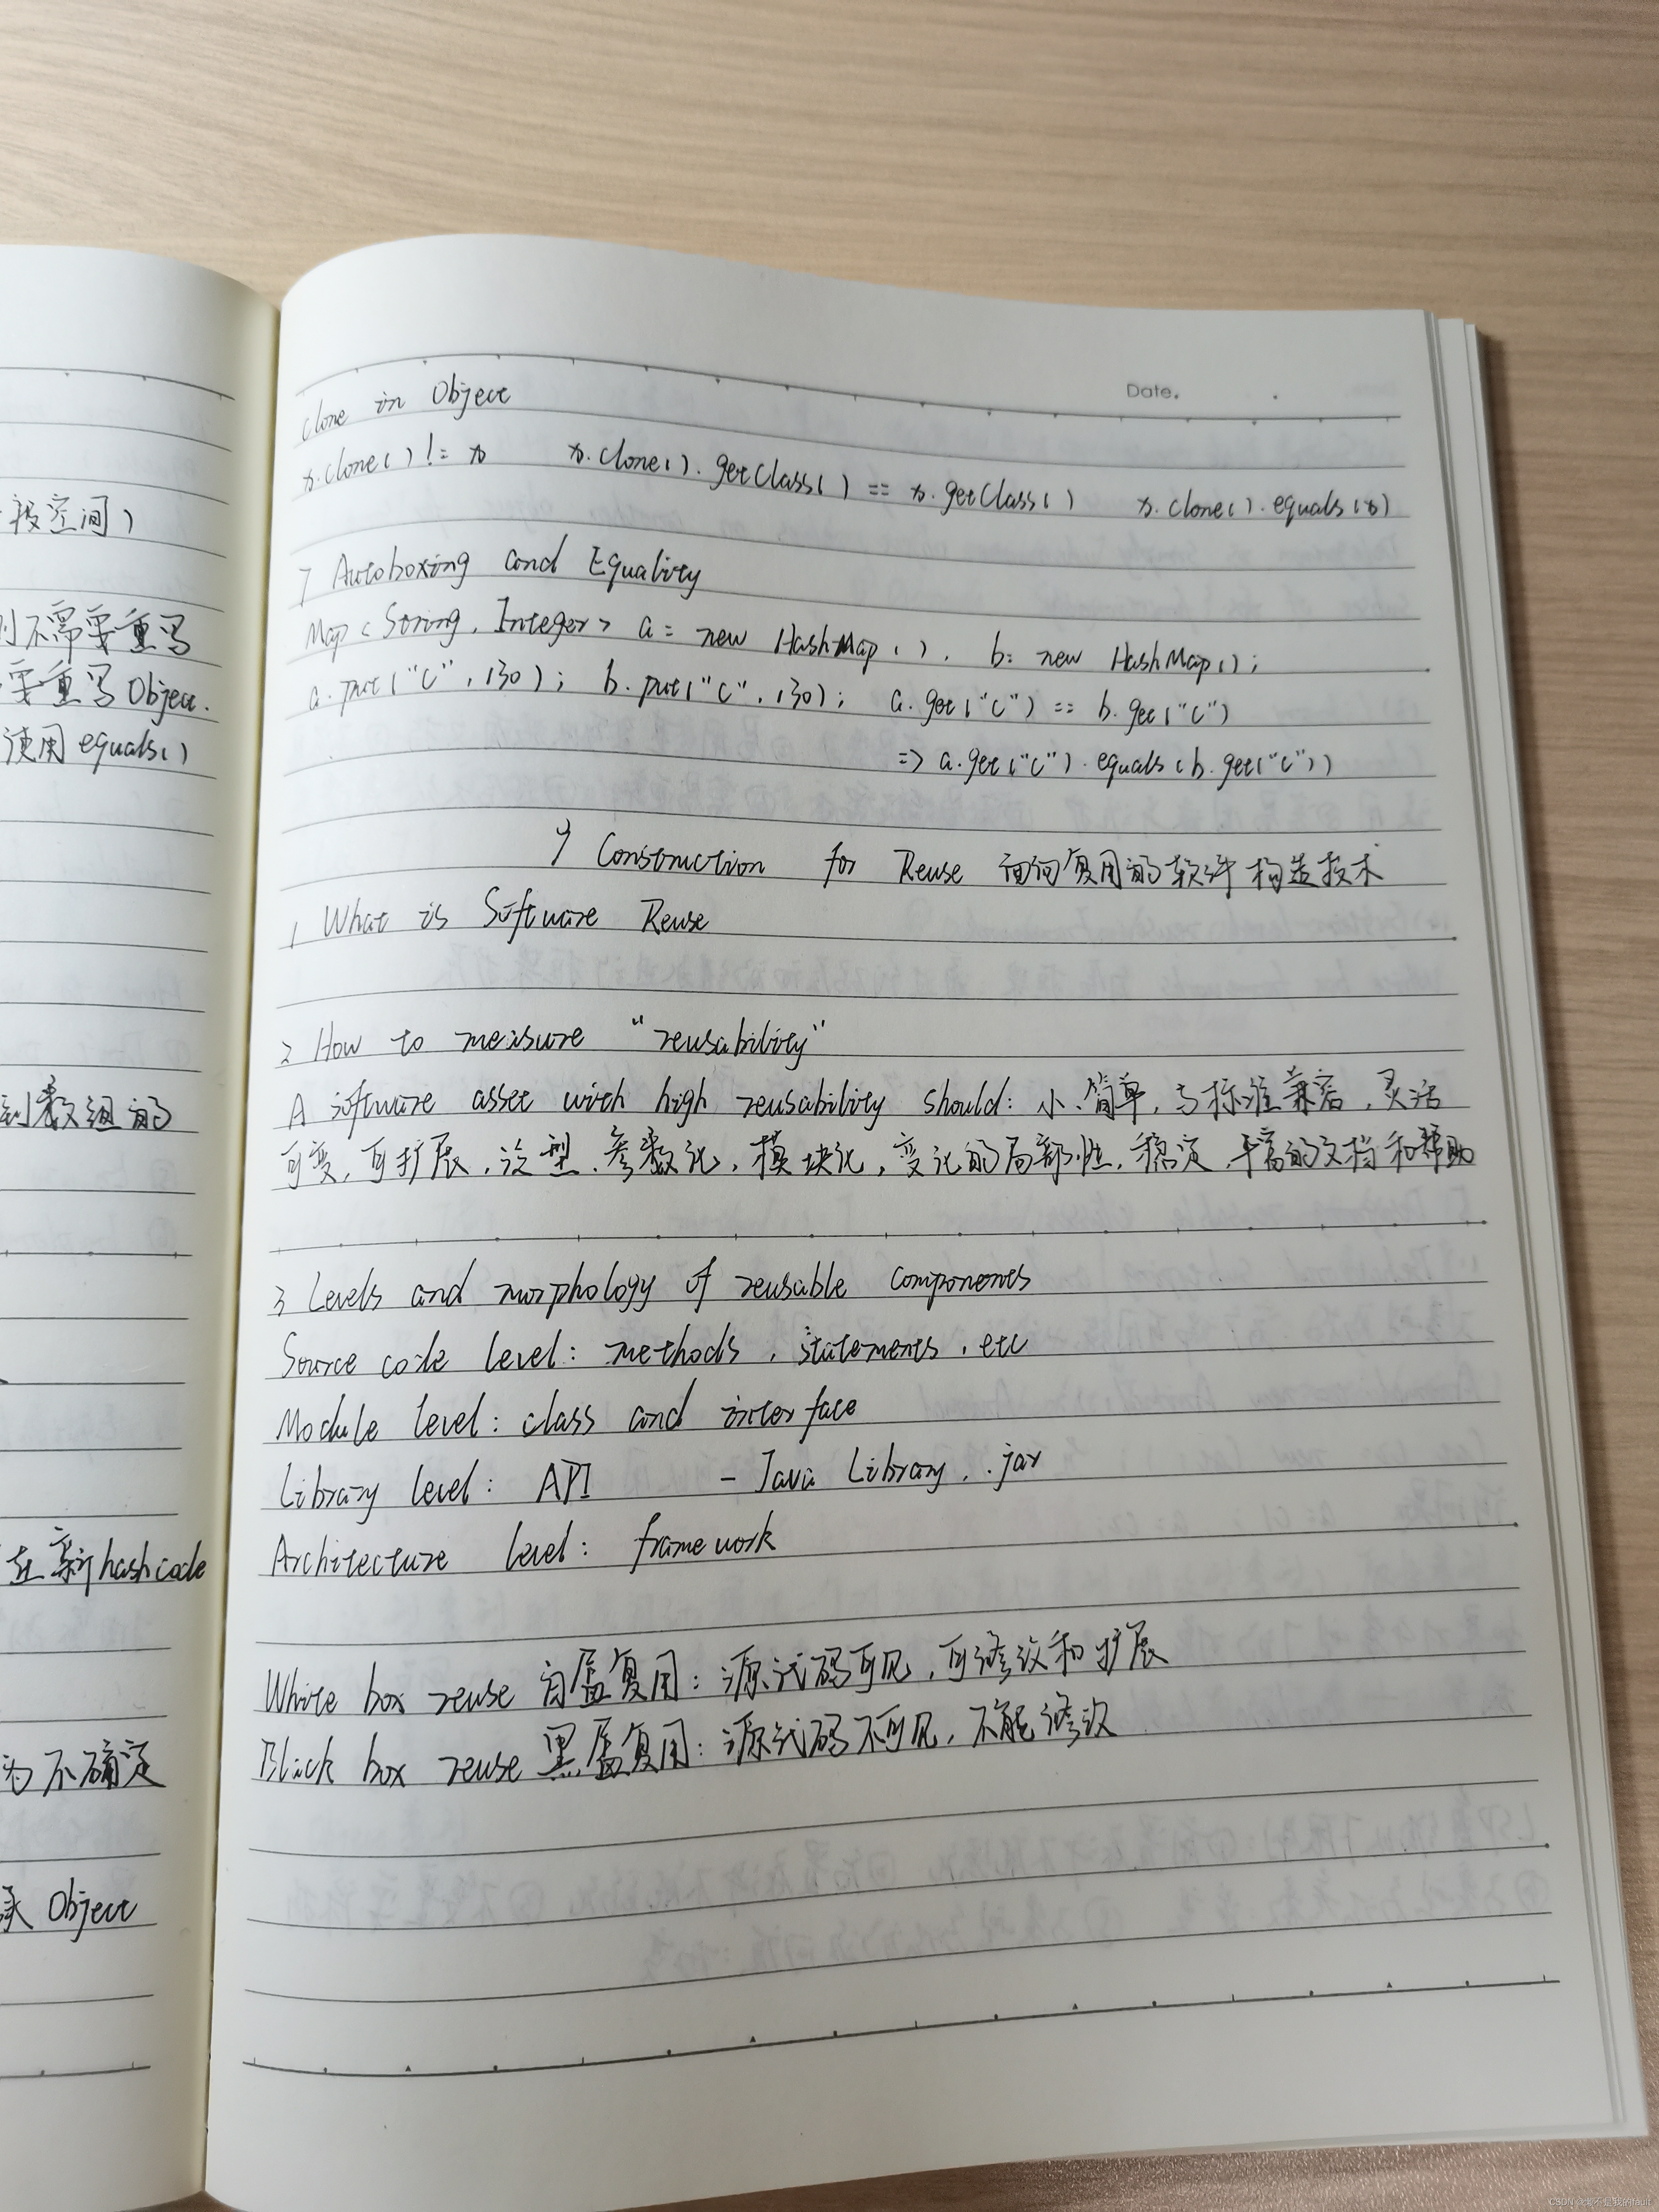 段空间)
则不需要重写
要重写Object.
使用equals()
到数组的
在新hashcode
为不确定
Object
Date.
clone in Object
x.clone() != x    x.clone().getClass() == x.getClass()    x.clone().equals(x)
7 Autoboxing and Equality
Map<String, Integer> a = new HashMap(), b = new HashMap();
a.put("c", 130); b.put("c", 130); a.get("c") == b.get("c")
=> a.get("c").equals(b.get("c"))
9 Construction for Reuse 面向复用的软件构造技术
1 What is Software Reuse
2 How to measure "reusability"
A software asset with high reusability should: 小、简单, 与标准兼容, 灵活
可变, 可扩展, 泛型、参数化, 模块化, 变化的局部性, 稳定, 丰富的文档和帮助
3 Levels and morphology of reusable components
Source code level: methods, statements, etc
Module level: class and interface
Library level: API    - Java Library, .jar
Architecture level: framework
White box reuse 白盒复用: 源代码可见, 可修改和扩展
Black box reuse 黑盒复用: 源代码不可见, 不能修改